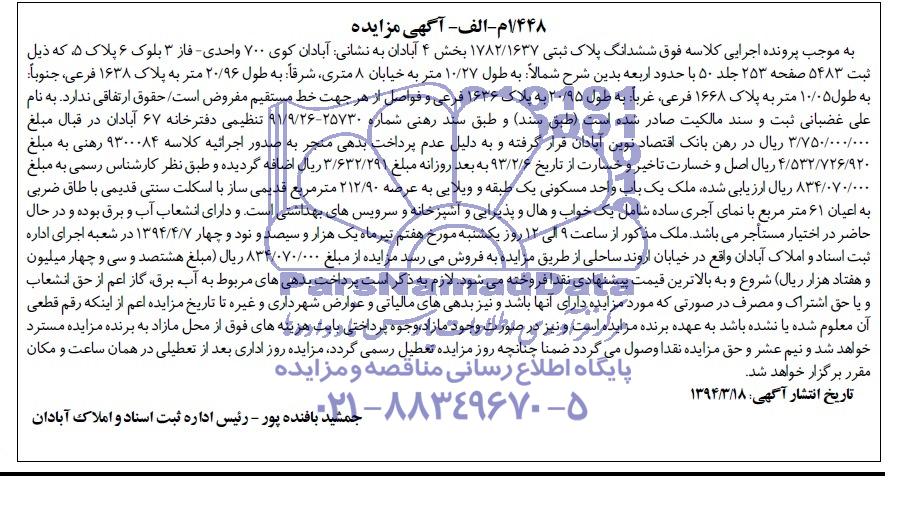 ۱/۴۴۸م-الف- آگهی مزایده
به موجب پرونده اجرایی کلاسه فوق ششدانگ پلاک ثبتی ۱۷۸۲/۱۶۳۷ بخش ۴ آبادان به نشانی: آبادان کوی ۷۰۰ واحدی- فاز ۳ بلوک ۶ پلاک ۵، که ذیل
ثبت ۵۴۸۳ صفحه ۲۵۳ جلد ۵۰ با حدود اربعه بدین شرح شمالاً: به طول ۱۰/۲۷ متر به خیابان ۸ متری، شرقاً: به طول ۲۰/۹۶ متر به پلاک ۱۶۳۸ فرعی، جنوباً:
به طول ۱۰/۰۵ متر به پلاک ۱۶۶۸ فرعی، غرباً: به طول ۲۰/۹۵ به پلاک ۱۶۳۶ فرعی و فواصل از هر جهت خط مستقیم مفروض است/ حقوق ارتفاقی ندارد. به نام
علی غضبانی ثبت و سند مالکیت صادر شده است (طبق سند) و طبق سند رهنی شماره ۲۵۷۳۰-۹۱/۹/۲۶ تنظیمی دفترخانه ۶۷ آبادان در قبال مبلغ
۳/۷۵۰/۰۰۰/۰۰۰ ریال در رهن بانک اقتصاد نوین آبادان قرار گرفته و به دلیل عدم پرداخت بدهی منجر به صدور اجرائیه کلاسه ۹۳۰۰۰۸۴ رهنی به مبلغ
۴/۵۳۲/۷۲۶/۹۲۰ ریال اصل و خسارت تاخیر و خسارت از تاریخ ۹۳/۲/۶ به بعد روزانه مبلغ ۳/۶۳۲/۲۹۱ ریال اضافه گردیده و طبق نظر کارشناس رسمی به مبلغ
۸۳۴/۰۷۰/۰۰۰ ریال ارزیابی شده، ملک یک باب واحد مسکونی یک طبقه و ویلایی به عرصه ۲۱۲/۹۰ مترمربع قدیمی ساز با اسکلت سنتی قدیمی با طاق ضربی
به اعیان ۶۱ متر مربع با نمای آجری ساده شامل یک خواب و هال و پذیرایی و آشپزخانه و سرویس های بهداشتی است. و دارای انشعاب آب و برق بوده و در حال
حاضر در اختیار مستأجر می باشد. ملک مذکور از ساعت ۹ الی ۱۲ روز یکشنبه مورخ هفتم تیرماه یک هزار و سیصد و نود و چهار ۱۳۹۴/۴/۷ در شعبه اجرای اداره
ثبت اسناد و املاک آبادان واقع در خیابان اروند ساحلی از طریق مزایده به فروش می رسد مزایده از مبلغ ۸۳۴/۰۷۰/۰۰۰ ریال (مبلغ هشتصد و سی و چهار میلیون
و هفتاد هزار ریال) شروع و به بالاترین قیمت پیشنهادی نقدا فروخته می شود. لازم به ذکر است پرداخت بدهی های مربوط به آب، برق، گاز اعم از حق انشعاب
و یا حق اشتراک و مصرف در صورتی که مورد مزایده دارای آنها باشد و نیز بدهی های مالیاتی و عوارض شهرداری و غیره تا تاریخ مزایده اعم از اینکه رقم قطعی
آن معلوم شده یا نشده باشد به عهده برنده مزایده است و نیز در صورت وجود مازاد وجوه پرداختی بابت هزینه های فوق از محل مازاد به برنده مزایده مسترد
خواهد شد و نیم عشر و حق مزایده نقدا وصول می گردد ضمنا چنانچه روز مزایده تعطیل رسمی گردد، مزایده روز اداری بعد از تعطیلی در همان ساعت و مکان
مقرر برگزار خواهد شد.
پایگاه اطلاع رسانی مناقصه و مزایده
تاریخ انتشار آگهی: ۱۳۹۴/۳/۱۸
۰۲۱-۸۸۳۴۹۶۷۰-۵
جمشید بافنده پور - رئیس اداره ثبت اسناد و املاک آبادان
ParsNamadData